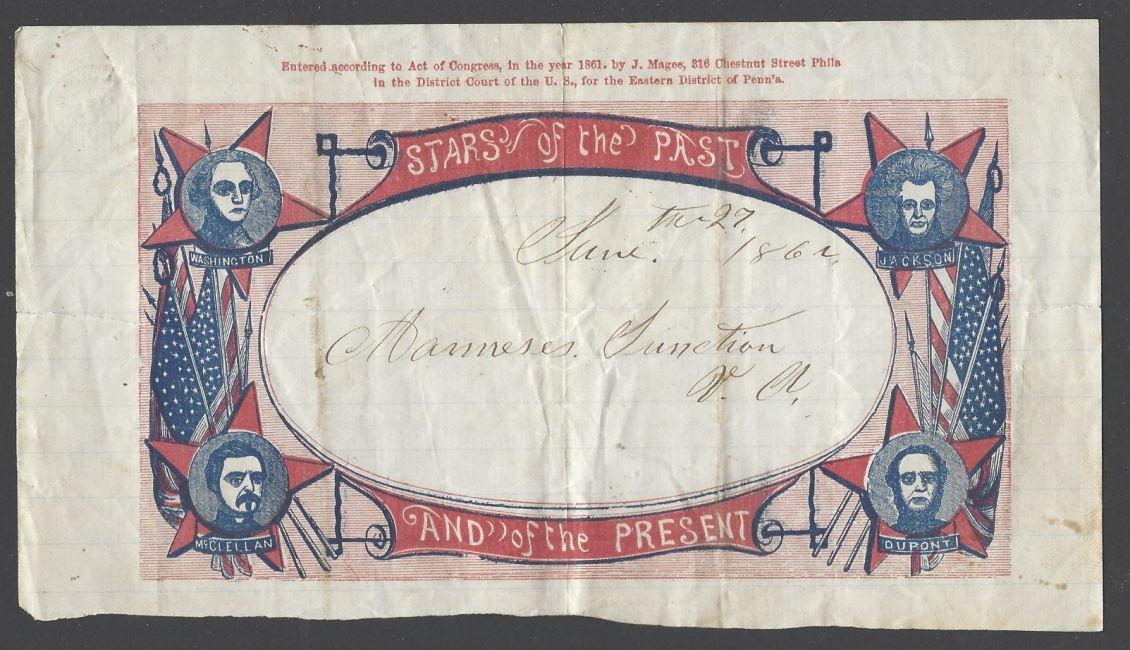 Entered according to Act of Congress, in the year 1861, by J. Magee, 316 Chestnut Street Phila
in the District Court of the U. S., for the Eastern District of Penn'a.
STARS of the PAST
WASHINGTON
JACKSON
June. th 27.
1862,
Manneses. Junction
V. A.
McCLELLAN
DUPONT
AND of the PRESENT